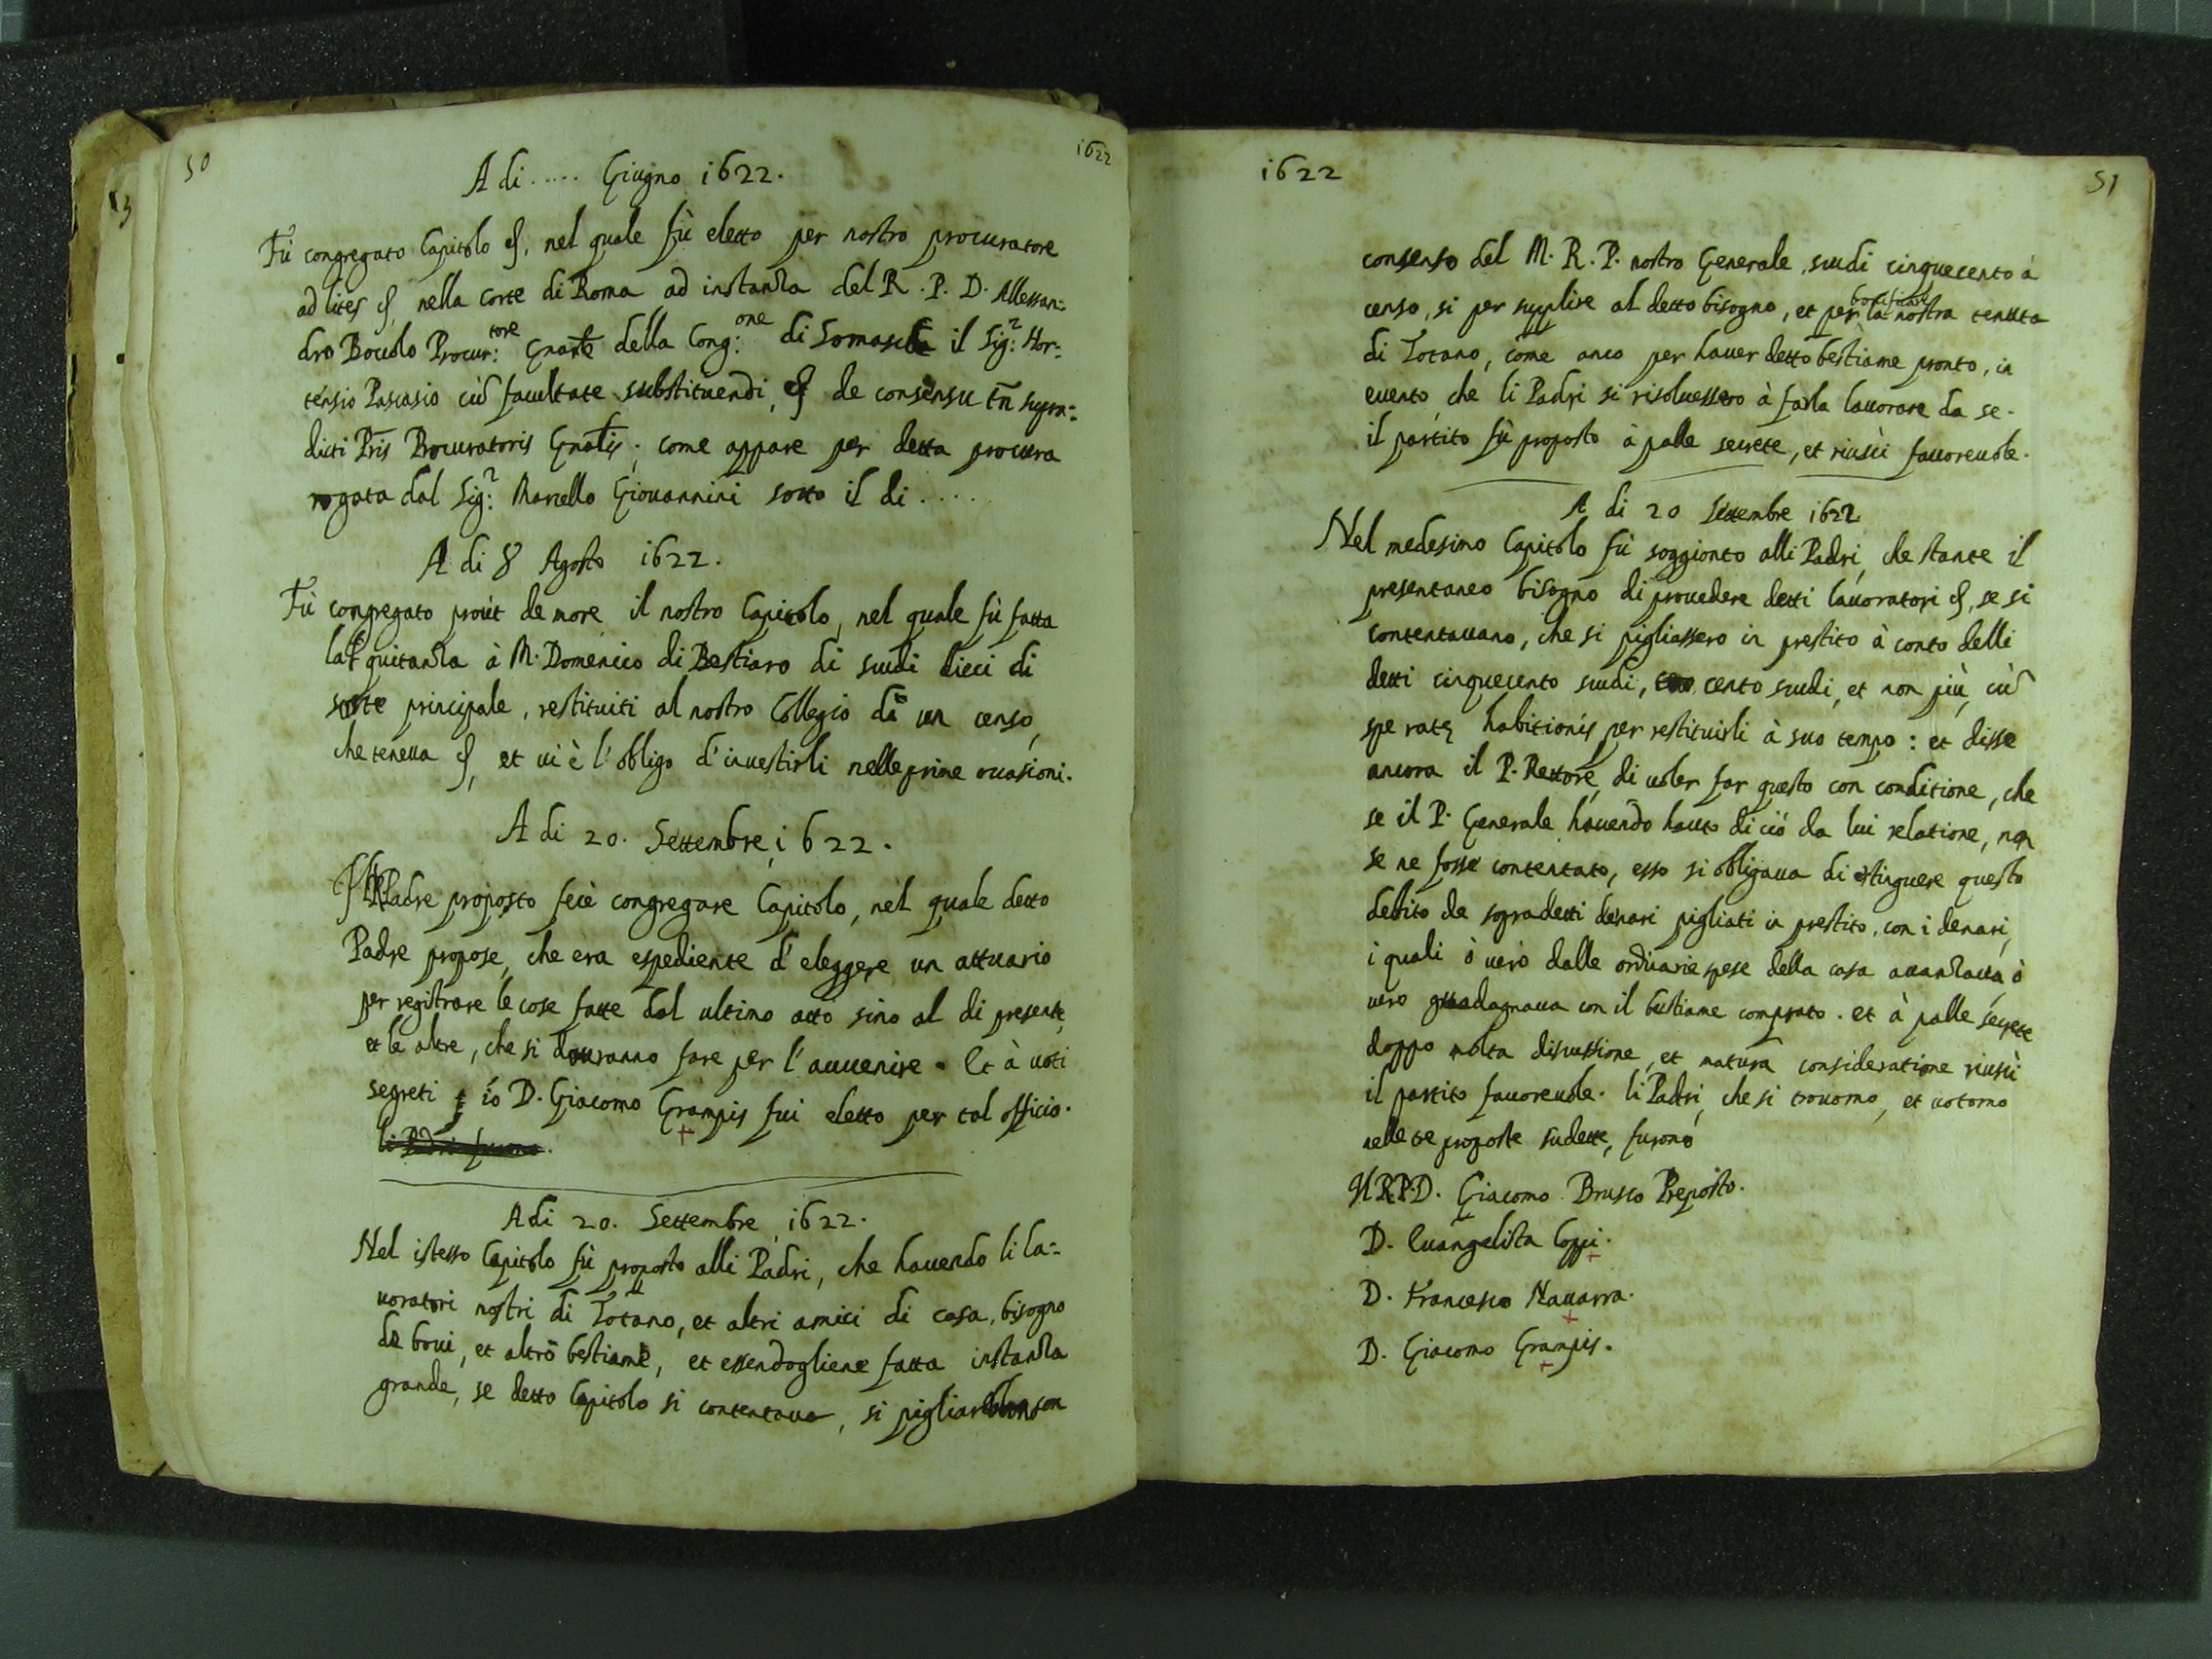 50
1622
A di ..... Giugno 1622.
Fù congregato Capitolo &, nel quale fù eletto per nostro procuratore
ad lites &, nella corte di Roma ad instanza del R. P. D. Alessan:
dro Boccolo Procur:tore Gnãle della Cong:one di Somascha il Sig:r Hor:
tensio Pascasio cũ facultate substituendi, & de consensu tñ supra:
dicti Pris Procuratoris Gnãlis; come appare per detta procura
rogata dal Sig:r Marcello Giouannini sotto il di .....
A di 8 Agosto 1622.
Fù congregato prout de more il nostro Capitolo, nel quale fù fatta
la quitanza à M. Domenico di Bestiaro di scudi dieci di
sorte principale, restituiti al nostro Collegio da un censo,
che teneua &, et ui è l'obligo d'inuestirli nelle prime occasioni.
A di 20. Settembre, 1622.
Il Padre proposto fece congregare Capitolo, nel quale detto
Padre propose, che era espediente d'eleggere un attuario
per registrare le cose fatte dal ultimo atto sino al di presente,
et le altre, che si douranno fare per l'auuenire. Et à uoti
segreti io D. Giacomo Grampis fui eletto per tal officio.
li Padri furono.
A di 20. Settembre, 1622.
Nel istesso Capitolo fù proposto alli Padri, che hauendo li la:
uoratori nostri di Totano, et altri amici di casa, bisogno
de boui, et altro bestiame, et essendogliene fatta instanza
grande, se detto Capitolo si contentaua, si pigliar con
1622
51
consenso del M. R. P. nostro Generale, scudi cinquecento à
censo, si per supplire al detto bisogno, et per bonificare la nostra tenuta
di Totano, come anco per hauer detto bestiame pronto, in
euento, che li Padri si risoluessero à farla lauorare da se.
il partito fù proposto à palle secrete, et riuscì fauoreuole.
A di 20 Settembre 1622
Nel medesimo Capitolo fù soggionto alli Padri, che stante il
presentaneo bisogno di prouedere detti lauoratori &, se si
contentauano, che si pigliassero in prestito à conto delli
detti cinquecento scudi, cento scudi, et non più, cũ
spe ratę habitionis per restituirli à suo tempo: et disse
ancora il P. Rettore, di uoler far questo con conditione, che
se il P. Generale, hauendo hauto di ciò da lui relatione, non
se ne fosse contentato, esso si obligaua di estinguere questo
debito de sopradetti denari pigliati in prestito, con i denari,
i quali ò uero dalle ordinarie spese della casa auanzaua, ò
uero guadagnaua con il bestiame comprato. et à palle secrete
doppo molta discussione, et matura consideratione riuscì
il partito fauoreuole. li Padri, che si trouorno, et uotorno
nelle tre proposte sudette, furono
Il R.P.D. Giacomo Brusco Preposito.
D. Euangelista Coppi.
D. Francesco Nauarra.
D. Giacomo Grampis.